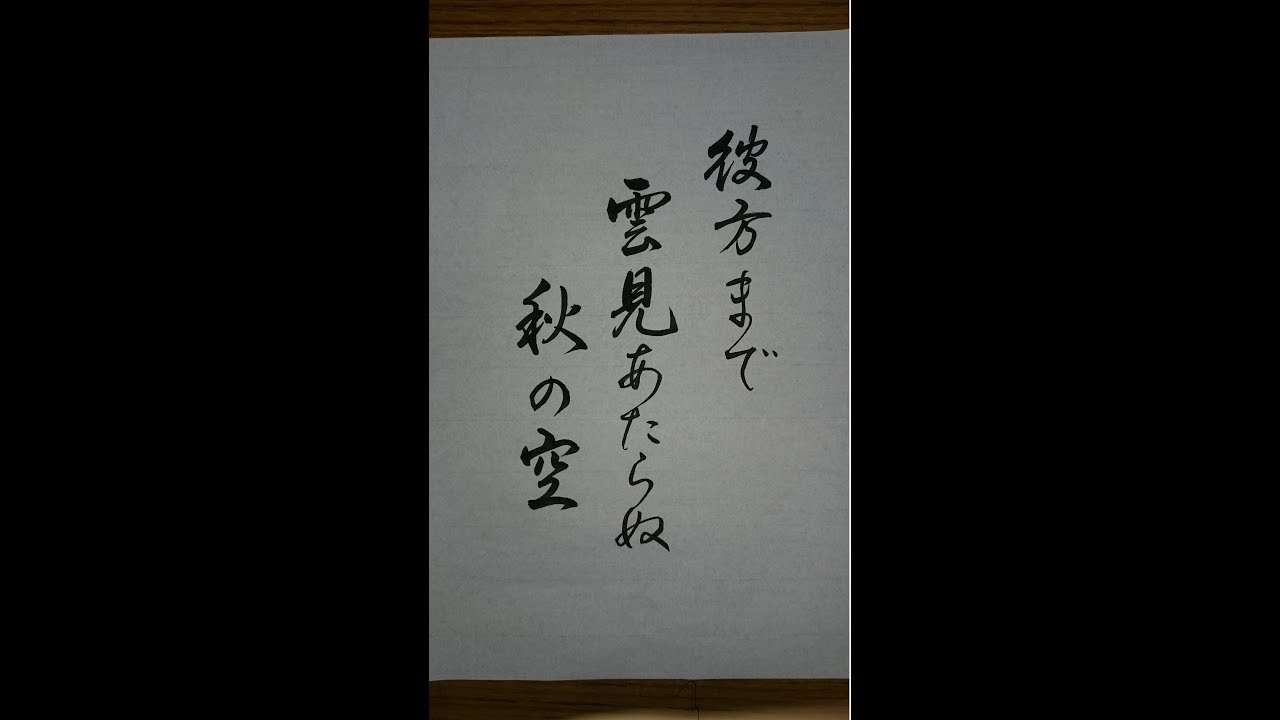 彼方まで
雲見あたらぬ
秋の空